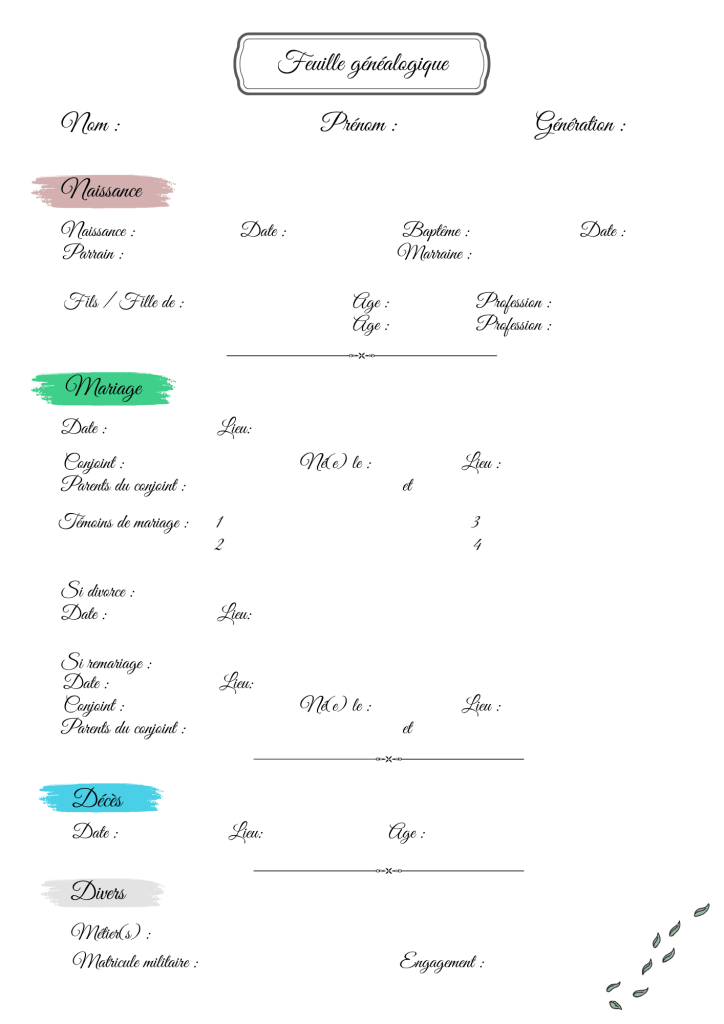 Feuille généalogique
Nom : Prénom : Génération :
Naissance
Naissance : Date : Baptême : Date :
Parrain : Marraine :
Fils / Fille de : Age : Profession :
Age : Profession :
Mariage
Date : Lieu:
Conjoint : Né(e) le : Lieu :
Parents du conjoint : et
Témoins de mariage : 1 3
2 4
Si divorce :
Date : Lieu:
Si remariage :
Date : Lieu:
Conjoint : Né(e) le : Lieu :
Parents du conjoint : et
Décès
Date : Lieu: Age :
Divers
Métier(s) :
Matricule militaire : Engagement :